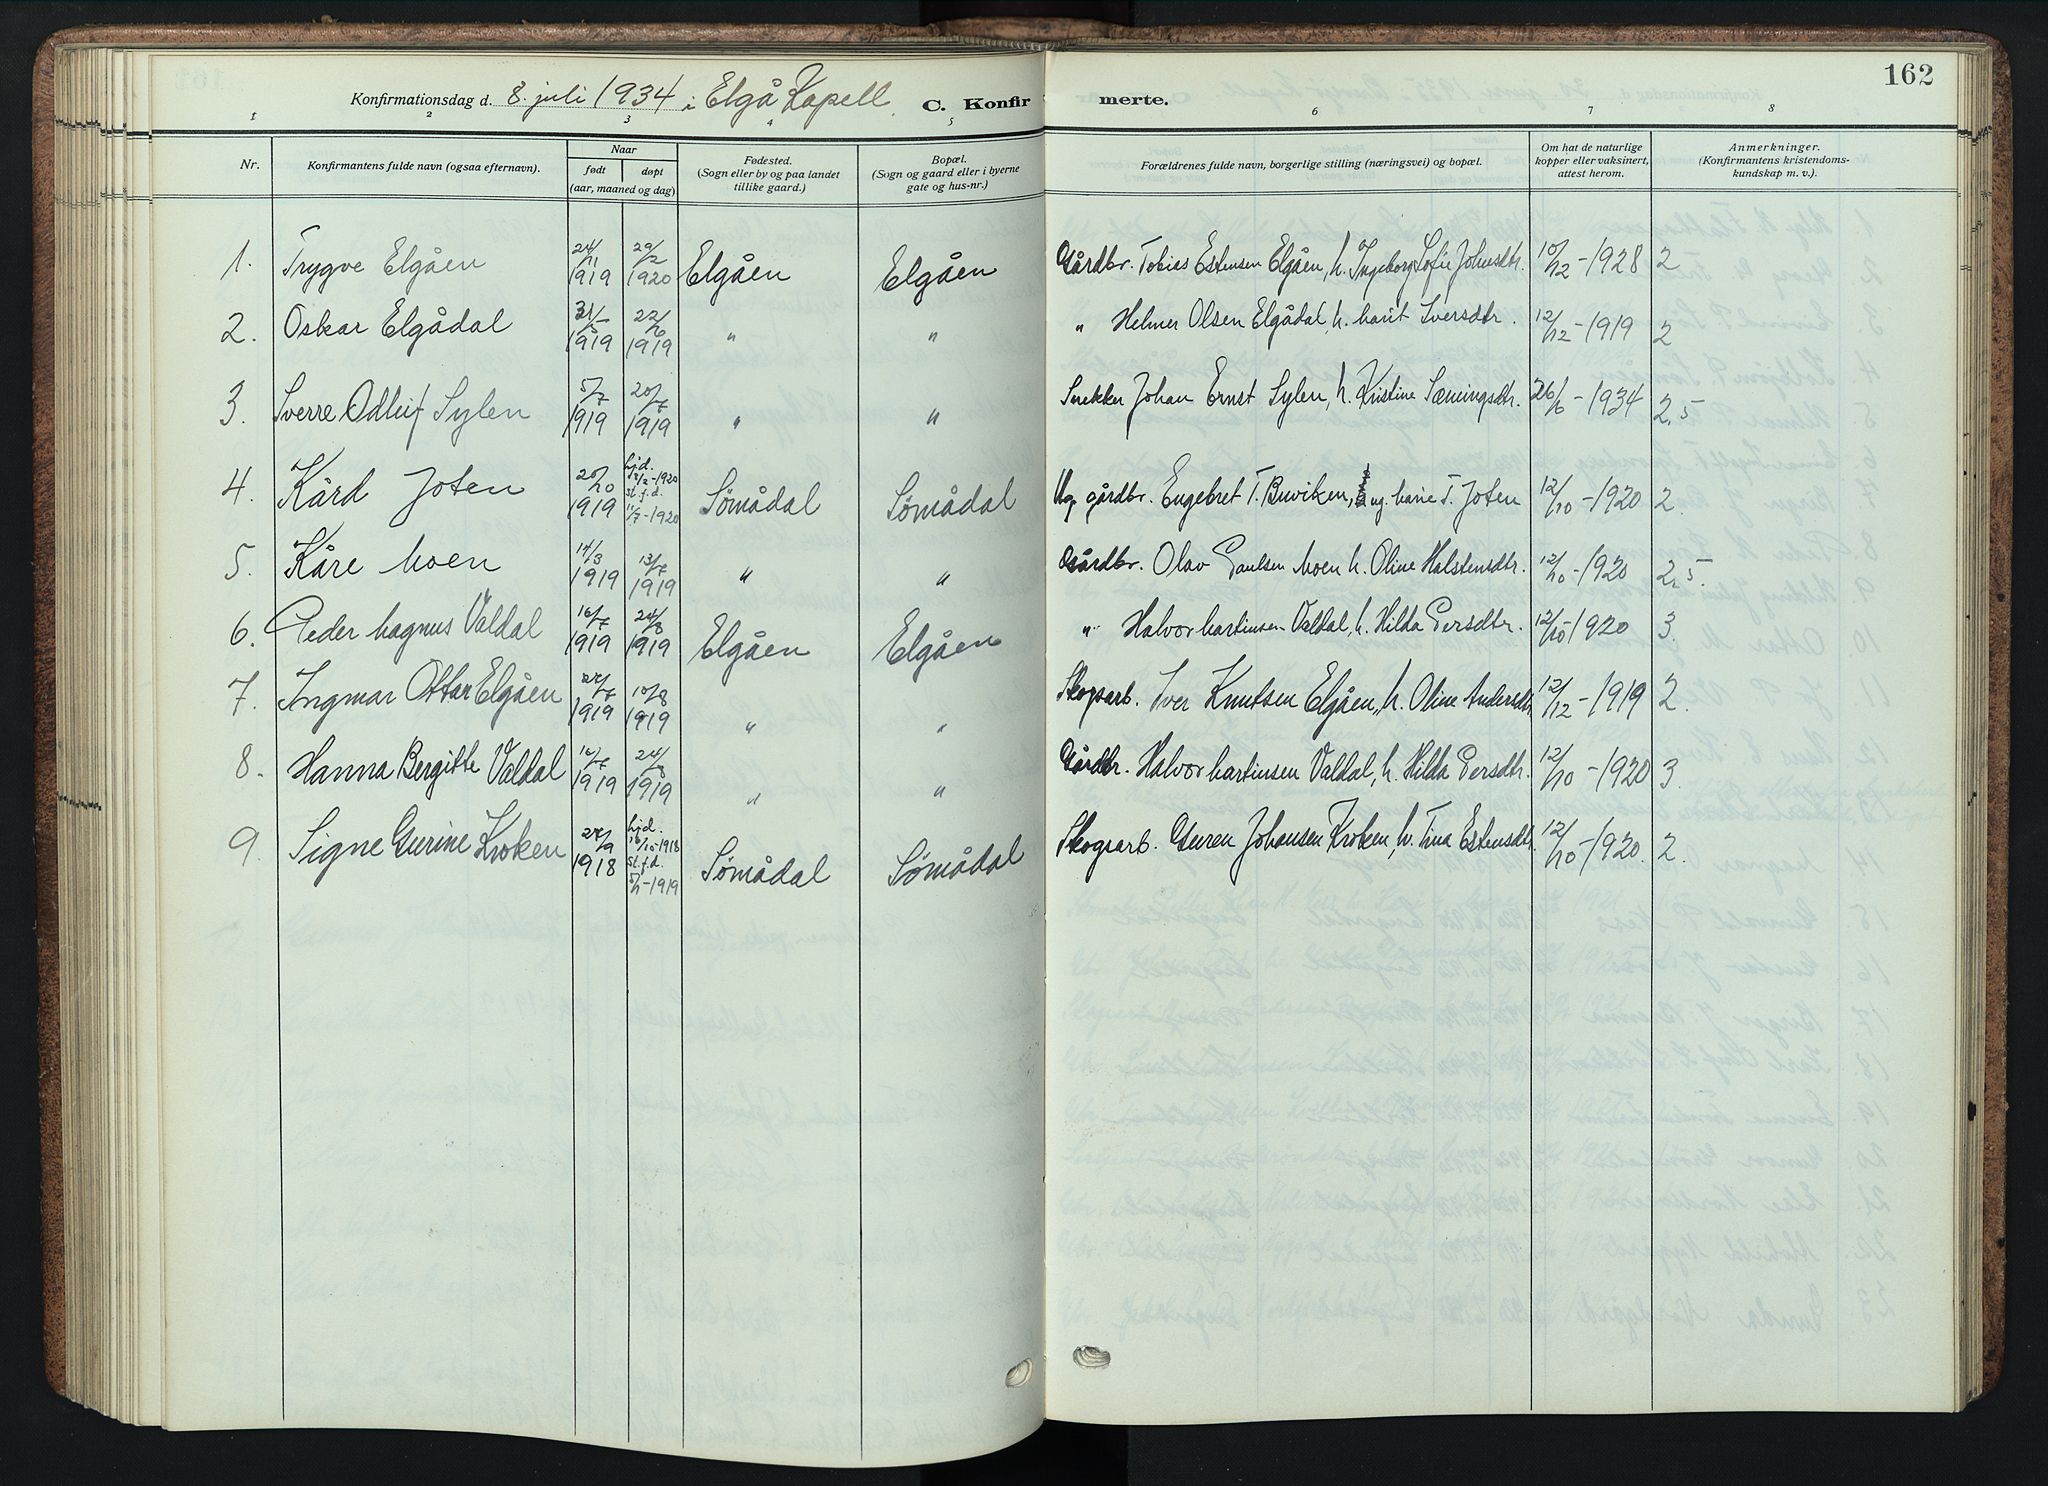 162
Konfirmationsdag d. 8. juli 1934 i Elgå Kapell. C. Konfirmerte.
1 2 3 4 5 6 7 8
Nr. Konfirmantens fulde navn (ogsaa efternavn). Naar født døpt (aar, maaned og dag) Fødested. (Sogn eller by og paa landet tillike gaard.) Bopæl. (Sogn og gaard eller i byerne gate og hus-nr.) Forældrenes fulde navn, borgerlige stilling (næringsvei) og bopæl. Om hat de naturlige kopper eller vaksinert, attest herom. Anmerkninger. (Konfirmantens kristendomskundskap m. v.).
1. Trygve Elgåen 24/11 1919 29/2 1920 Elgåen Elgåen Gårdbr. Tobias Estensen Elgåen, h. Ingeborg Sofie Johnsdtr. 10/12 - 1928 2
2. Oskar Elgådal 31/5 1919 22/6 1919 " " " Helmer Olsen Elgådal, h. Marit Iversdtr. 12/12 - 1919 2
3. Sverre Odleif Sylen 5/7 1919 20/7 1919 " " Snekker Johan Ernst Sylen, h. Kristine Sæmingsdtr. 26/6 - 1934 2,5
4. Kård Joten 20/10 1919 hjd. 2/2 - 1920 st. f. d. 11/7 - 1920 Sømådal Sømådal Ug. gårdbr. Engebret T. Buviken, ug. Marie T. Joten 12/10 - 1920 2.
5. Kåre Moen 14/3 1919 13/7 1919 " " Gårdbr. Olav Paulsen Moen h. Oline Halstensdtr. 12/10 - 1920 2,5.
6. Peder Magnus Valdal 16/7 1919 24/8 1919 Elgåen Elgåen " Halvor Martinsen Valdal, h. Hilda Persdtr. 12/10 1920 3.
7. Ingmar Ottar Elgåen 1919 10/8 1919 " " Skogsarb. Iver Knutsen Elgåen, h. Oline Andersdtr. 12/12 - 1919 2.
8. Hanna Bergitte Valdal 16/7 1919 24/8 1919 " " Gårdbr. Halvor Martinsen Valdal, h. Hilda Persdtr. 12/10 - 1920 3.
9. Signe Gurine Kroken 24/9 1918 hjd. 16/10 - 1918 st. f. d. - 1919 Sømådal Sømådal Skogsarb. Guren Johansen Kroken, h. Tina Estensdtr. 12/10 - 1920. 2.